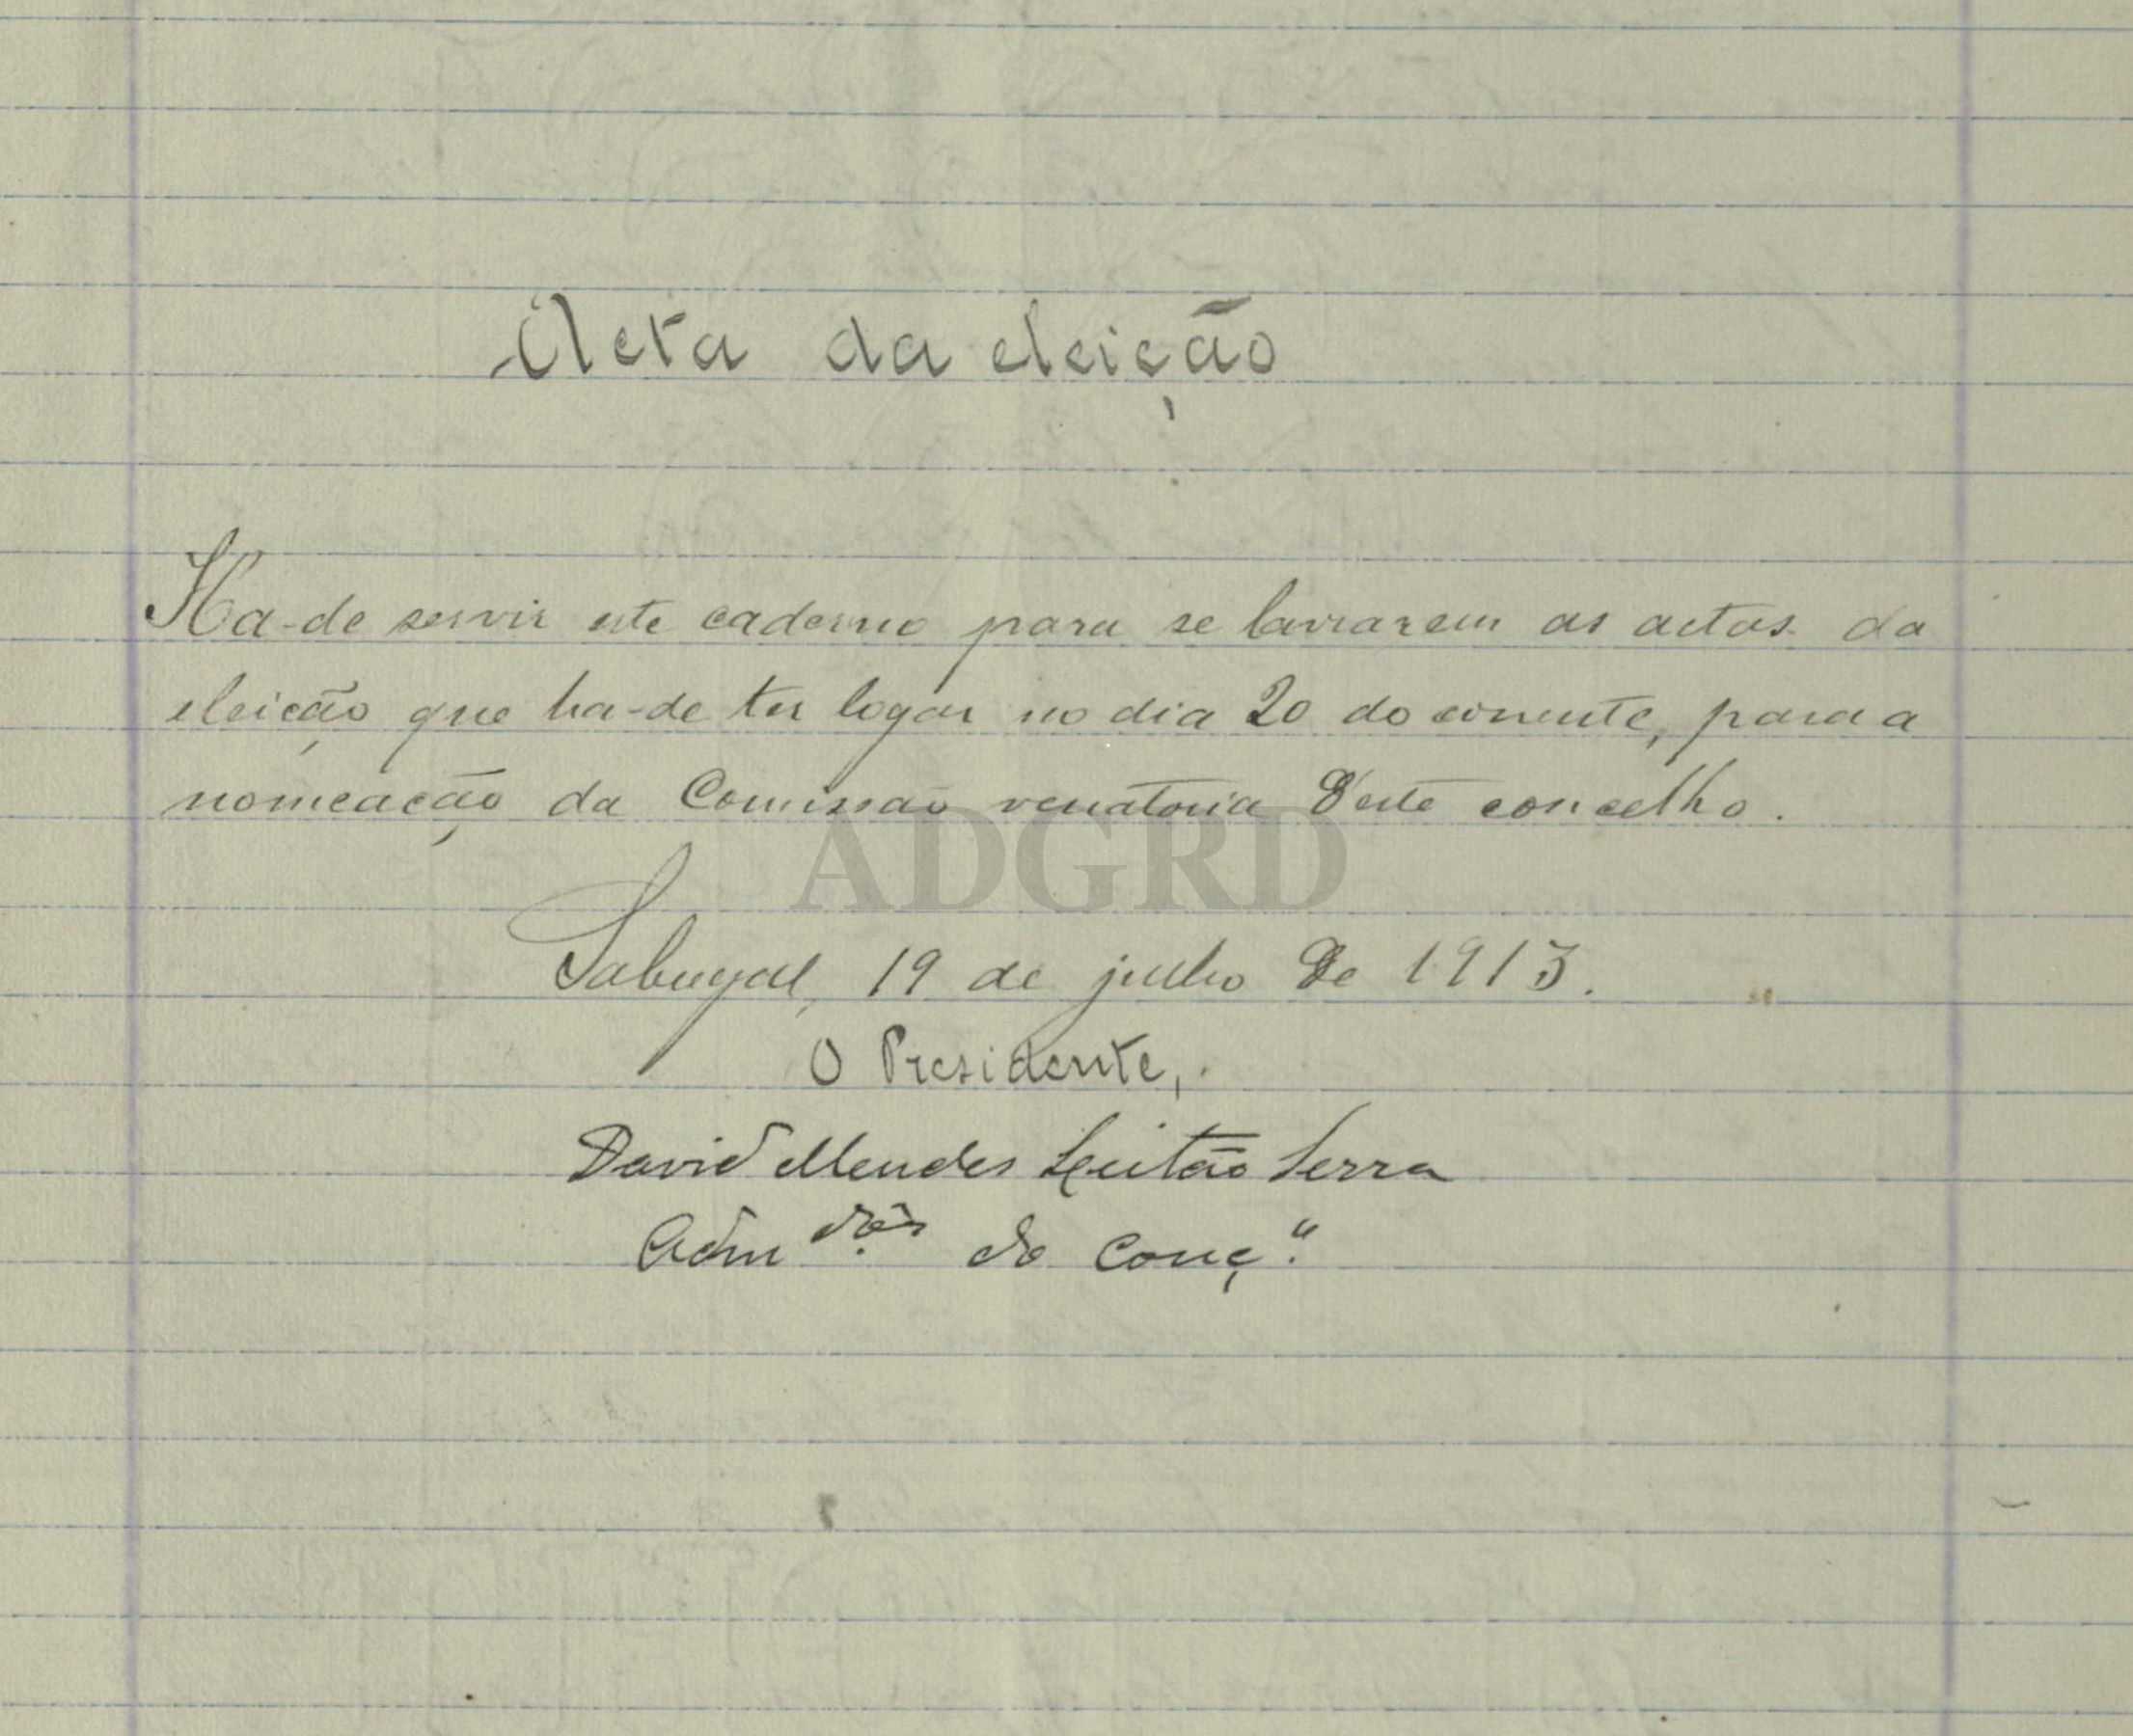 Acta da eleição
Ha-de servir este caderno para se lavrarem as actas da
eleição que ha-de ter logar no dia 20 do corrente, para a
nomeação da Comissão venatoria d'este concelho.
ADGRD
Sabugal, 19 de julho de 1913.
O Presidente,
David Mendes Leitão Serra
Adm.dor do Conç.º